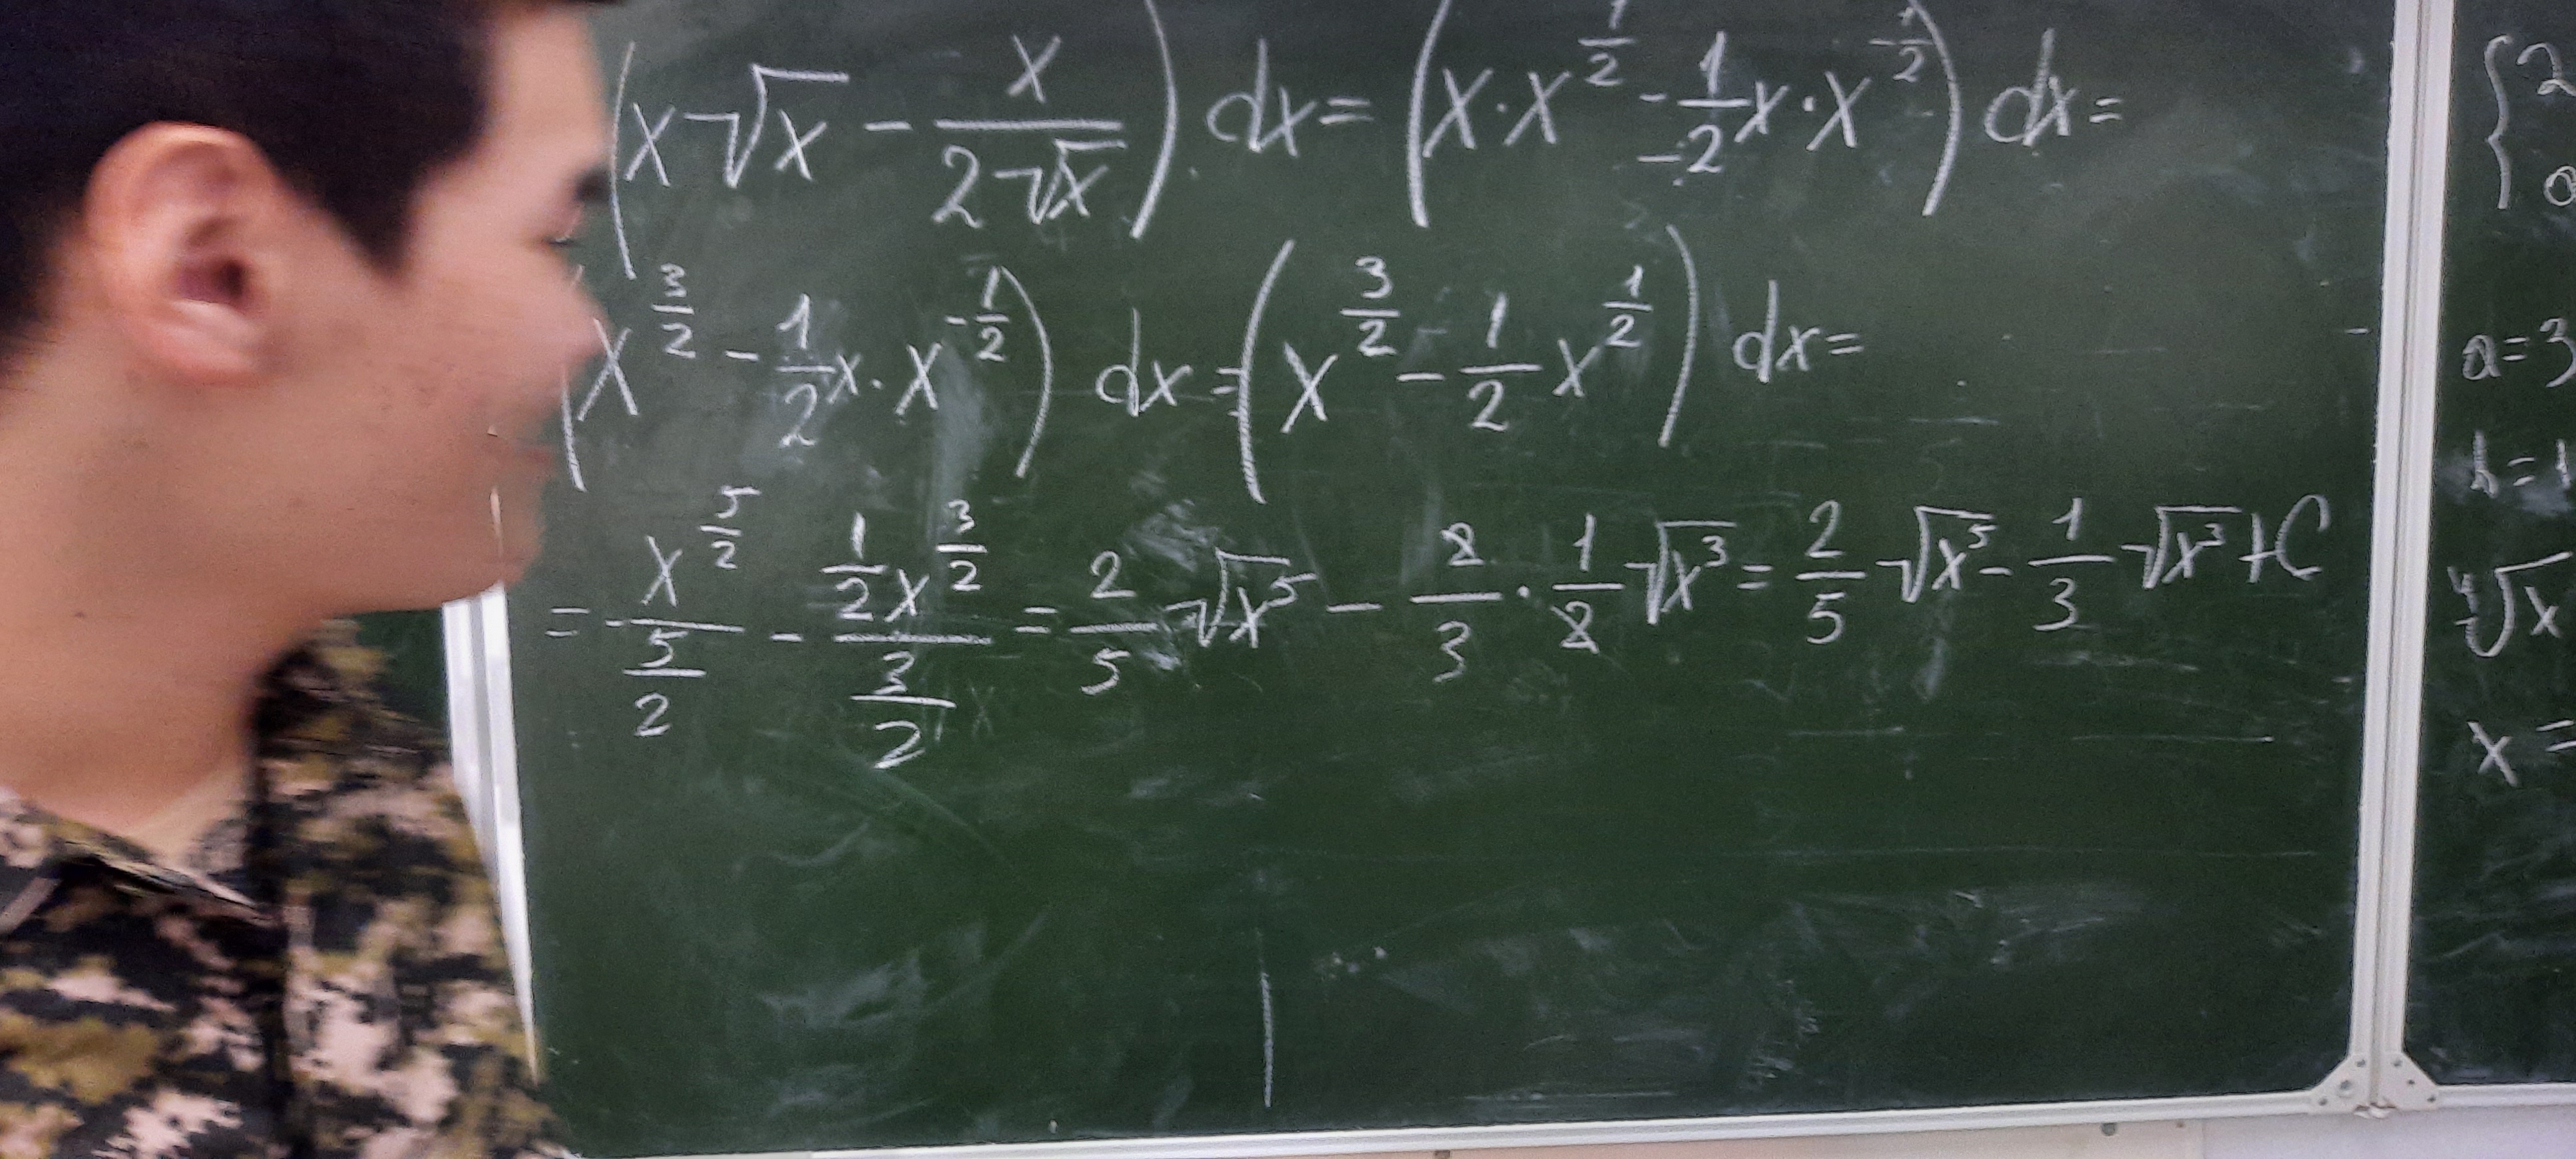 (x√x - x/(2√x)) dx = (x·x^(1/2) - 1/2 x·x^(-1/2)) dx =
(x^(3/2) - 1/2 x·x^(-1/2)) dx = (x^(3/2) - 1/2 x^(1/2)) dx =
= x^(5/2)/(5/2) - (1/2 x^(3/2))/(3/2) = 2/5 √x^5 - 2/3 · 1/2 √x^3 = 2/5 √x^5 - 1/3 √x^3 + C
{2
a=3
⁴√x
x=